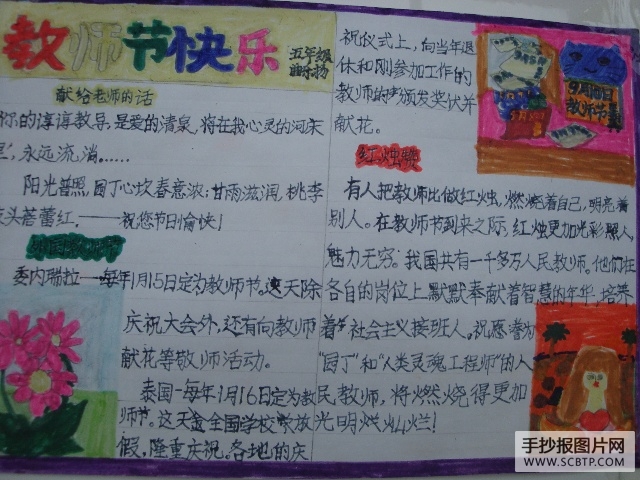 教师节快乐
五年级
献给老师的话
你的谆谆教导,是爱的清泉,将在我心灵的河床
里,永远流淌……
阳光普照,园丁心坎春意浓;甘雨滋润,桃李
枝头蓓蕾红,——祝您节日愉快!
委内瑞拉—每年1月15日定为教师节。这天除
庆祝大会外,还有向教师
献花等敬师活动。
泰国-每年1月16日定为教
师节。这天全国学校放
假,隆重庆祝。各地的庆
祝仪式上,向当年退
休和刚参加工作的
教师颁发奖状并
献花。
9月10日
教师节
红烛赞
有人把教师比做红烛,燃烧着自己,明亮着
别人。在教师节到来之际,红烛更加光彩照人,
魅力无穷。我国共有一千多万人民教师。他们在
各自的岗位上默默奉献着智慧的年华,培养
着社会主义接班人。祝愿誉为
“园丁”和“人类灵魂工程师”的人
民教师,将燃烧得更加
光明灿烂!
手抄报图片网
WWW.SCBTP.COM